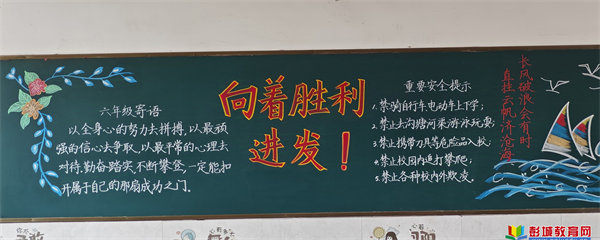 六年级寄语
以全身心的努力去拼搏,以最顽
强的信心去争取,以最平常的心理去
对待,勤奋踏实,不断攀登,一定能扣
开属于自己的那扇成功之门。
向着胜利
进发!
重要安全提示
1.禁骑自行车电动车上下学;
2.禁止去沟塘河渠游泳玩耍;
3.禁止携带刀具等危险品入校;
4.禁止校园内追打攀爬;
5.禁止各种校内外欺凌。
长风破浪会有时
直挂云帆济沧海
彭城教育网